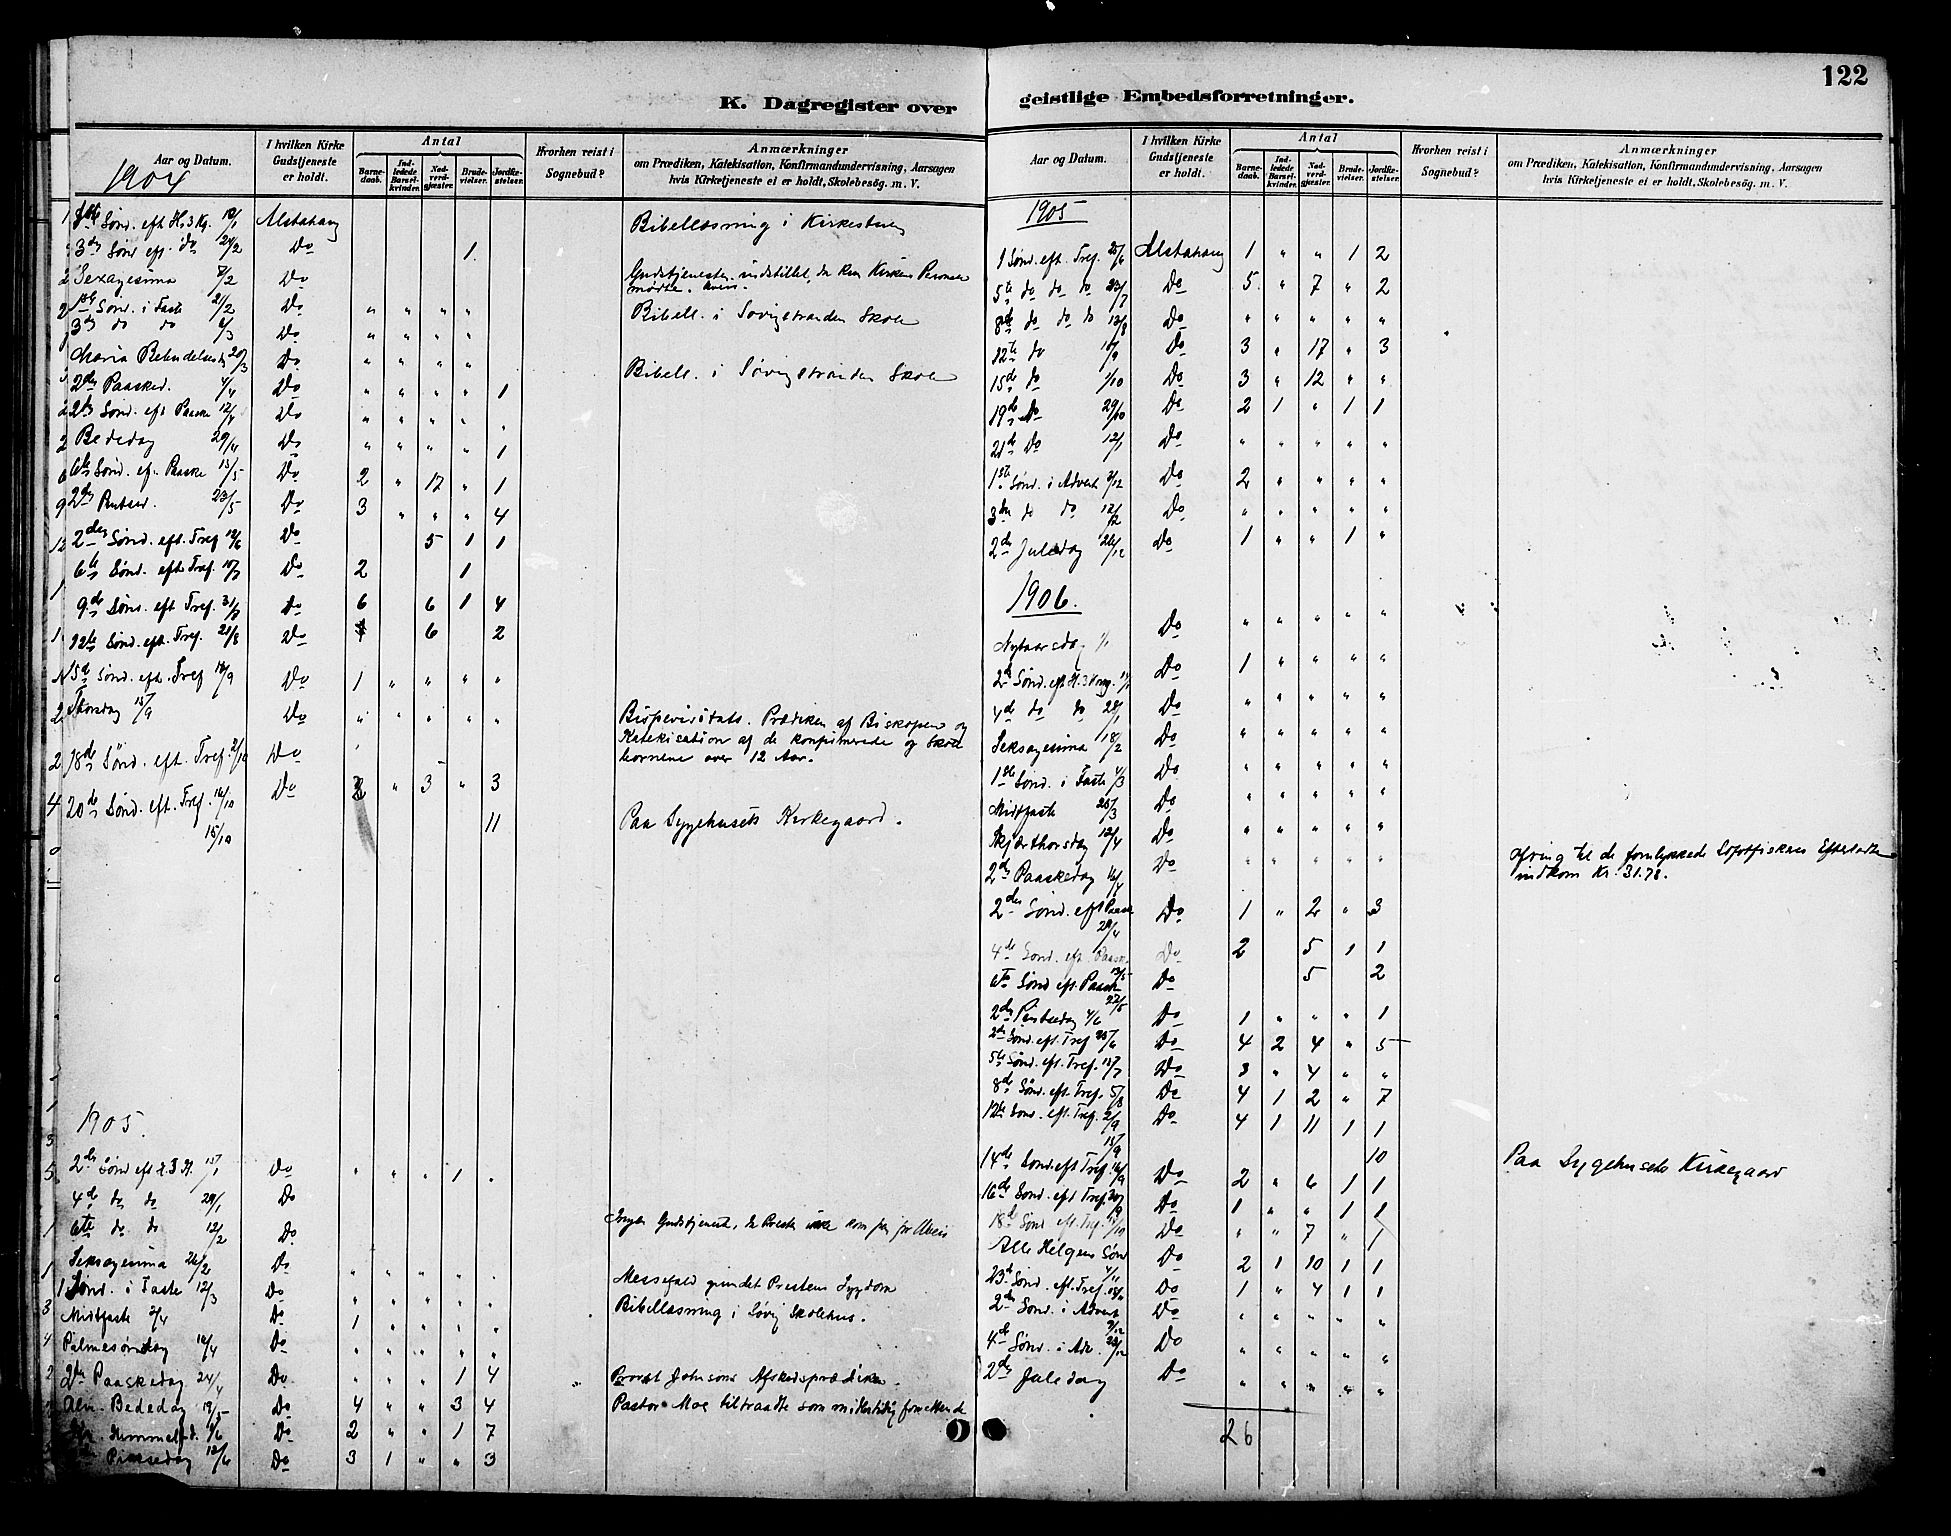 122
K. Dagregister over geistlige Embedsforretninger.
Aar og Datum.
I hvilken Kirke Gudstjeneste er holdt.
Antal
Barnedaab.
Indledede Barselkvinder.
Nadverdgjester.
Brudevielser.
Jordfæstelser.
Hvorhen reist i Sognebud?
Anmærkninger
om Prædiken, Katekisation, Konfirmandundervisning, Aarsagen
hvis Kirketjeneste ei er holdt, Skolebesög. m. V.
1904
Sønd. eft H. 3 Kg. Alstahaug Bibellæsning i
3die Sønd eft. do Do 1
Sexagesima 7/2 Do Gudstjenesten indstillet, da Kirkens
mødte.
1ste Sønd. i Faste 21/2 Do " " " " Bibell. i Søvigstranden Skole
3die do do 6/3 Do " " " "
Maria Bebudelsesd. 20/3 Do " " " " Bibell. i Søvigstranden Skole
2den Paasked. 4/4 Do " " " " 1
2den Sønd. eft Paaske Do " " " "
Bededag 29/4 Do " " " " 1
6te Sønd. ef. Paaske 15/5 Do 2 " 17 " 1
2den Pintsed. 23/5 Do 3 " " " 4
2den Sønd. eft. Tref 12/6 Do 5 1 1
6te Sønd. eft Tref. Do 2 1
9de Sønd. eft Tref. 31/7 Do 6 6 1 4
12te Sønd. eft. Tref. 21/8 Do 6 2
15de Sønd. eft. Tref Do 1 " " " "
Thorsdag 15/9 Do " " " " " Bispevisitats. Prædiken af Biskopen og
Katekisation af de konfirmerede og Skole
børnene over 12 Aar.
18de Sønd. eft. Tref. 2/10 Do
20de Sønd. eft. Tref. 16/10 Do 3 " 3
15/10 11 Paa Sygehusets Kirkegaard.
1905.
2den Sønd eft H. 3 K. 15/1 Do " " " 1 "
4de do do 29/1 Do
6te do do 12/2 Do Ingen Gudstjeneste, da Presten ikke kom
Seksagesima 26/2 Do " " " " "
1 Sønd. i Faste 12/3 Do " " " " " Messefald grundet Prestens Sygdom
Midtfaste 2/4 Do 1 " " " " Bibellæsning i Søvig Skolehus.
Palmesøndag 16/4 Do " " " " "
2den Paaskedag 24/4 Do " " " 1 4 Provst Johnsons Afskedsprædiken.
Alm. Bededag 19/5 Do 4 " " 3 4 Pastor Moe tiltraadte som midlertidig
Kr. Himmelfd. 1/6 Do 2 " " 1 7
Pinsedag 12/6 Do 3 1 " " 3
Aar og Datum.
I hvilken Kirke Gudstjeneste er holdt.
Antal
Barnedaab.
Indledede Barselkvinder.
Nadverdgjester.
Brudevielser.
Jordfæstelser.
Hvorhen reist i Sognebud?
Anmærkninger
om Prædiken, Katekisation, Konfirmandundervisning, Aarsagen
hvis Kirketjeneste ei er holdt, Skolebesög. m. V.
1905
1 Sønd. eft. Tref. 25/6 Alstahaug 1 " " 1 2
5te do do do 23/7 Do 5 " 7 " 2
8de do do do 13/8 Do " " " " "
12te do 10/9 Do 3 " 17 " 3
15de do 1/10 Do 3 " 12 " "
19de Do 29/10 Do 2 1 " 1 1
21de Do Do " " " " "
1ste Sønd. i Advent 3/12 Do 2 " " " "
3die do do Do " " " " "
2den Juledag 26/12 Do 1 " " 1 "
1906.
Nytaarsdag 1/1 Do " " " " "
2den Sønd. eft H. 3 Kong. Do 1 " " " "
4de do do 28/1 Do " " " " "
Seksagesima 18/2 Do " " " " "
1ste Sønd. i Faste 4/3 Do " " " " "
Midtfaste 25/3 Do " " " " "
Skjærthorsdag 12/4 Do " " " " "
2den Paaskedag 16/4 Do " " " " " Ofring til de forulykkede Lofotfiskeres Efterladte
indkom Kr. 31.78.
2den Sønd. eft Paaske 29/4 Do 1 " 2 " 3
4de Sønd. eft. Paaske 13/5 Do 2 5 1 1
6te Sønd eft. Paaske 27/5 Do 5 2
2den Pintsedag 4/6 Do 1 " " " 1
2den Sønd. eft. Tref Do 4 2 4 " 5
5te Sønd. eft. Tref. Do 3 " 4 " "
8de Sønd. eft. Tref. 5/8 Do 4 1 2 " 7
12te Sønd. eft. Tref. 2/9 Do 4 1 11 1 1
15/9 10 Paa Sygehusets Kirkegaard
14de Sønd. eft Tref. 16/9 Do 2 " 6 1 1
16de Sønd. eft Tref 30/9 Do 1 " " 1 1
18de Sønd eft. Tref. Do " " 7 " 1
Alle Helgens Sønd 4/11 Do 2 1 10 1 1
23de Sønd. eft. Tref. 18/11 Do 1 " 4 1 1
2den Sønd. i Advent 9/12 Do " " " " "
4de Sønd. i Adv. 23/12 Do " " " " "
2den Juledag Do " " " " "
26